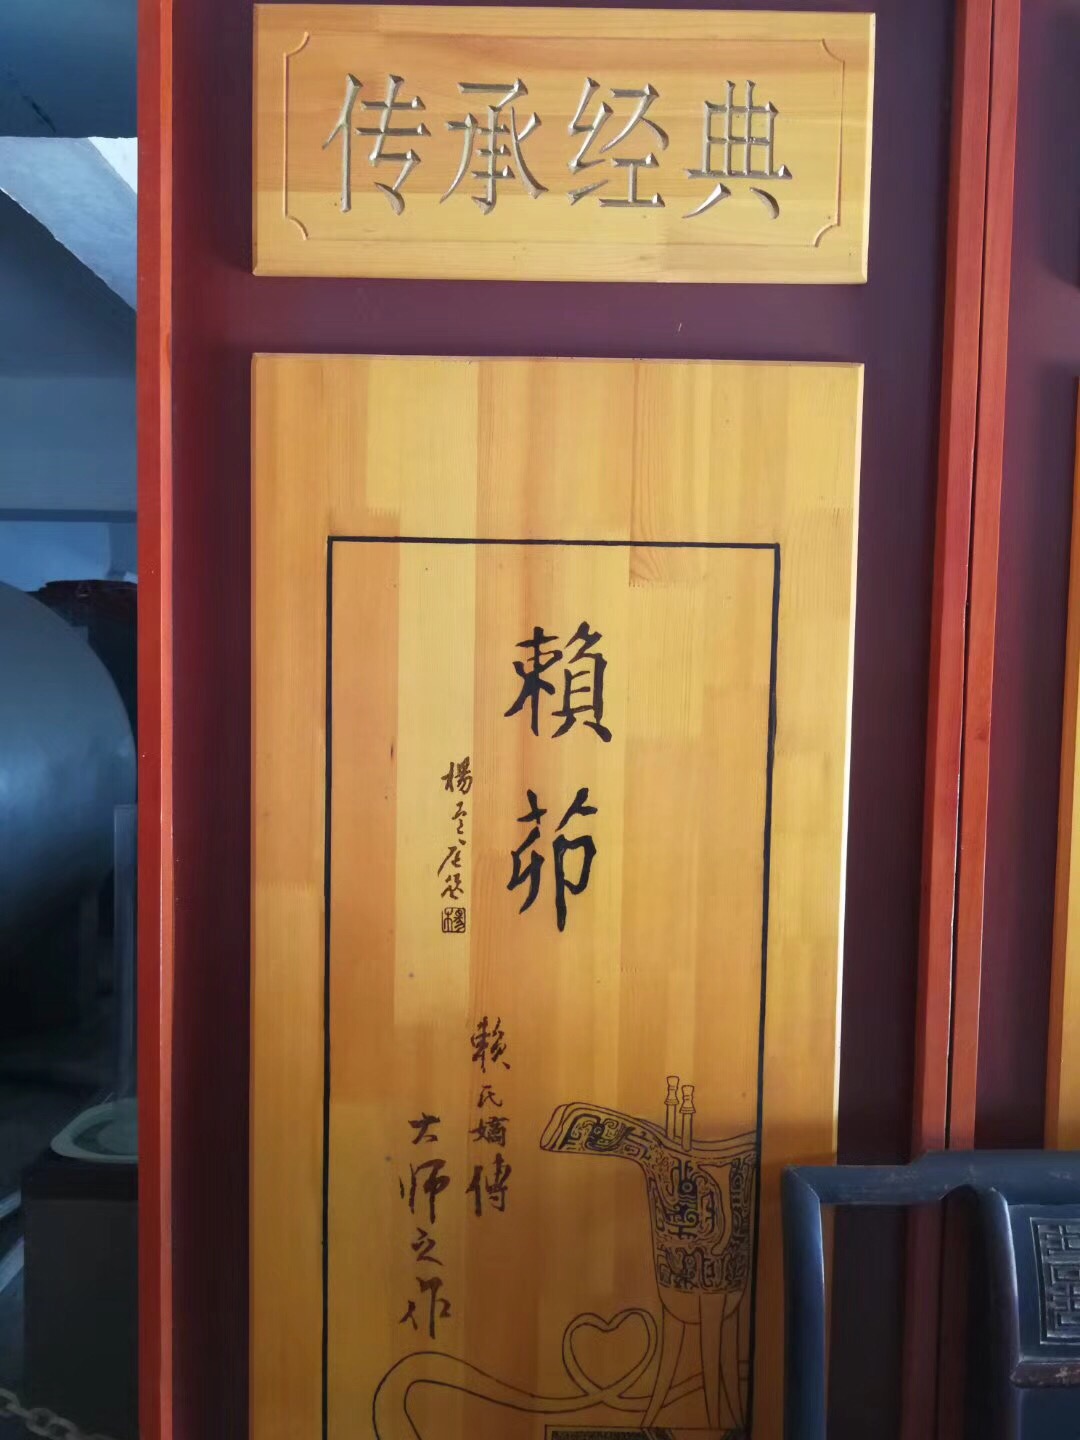 传承经典
賴茆
楊
楊
賴氏嫡傳
大师之作